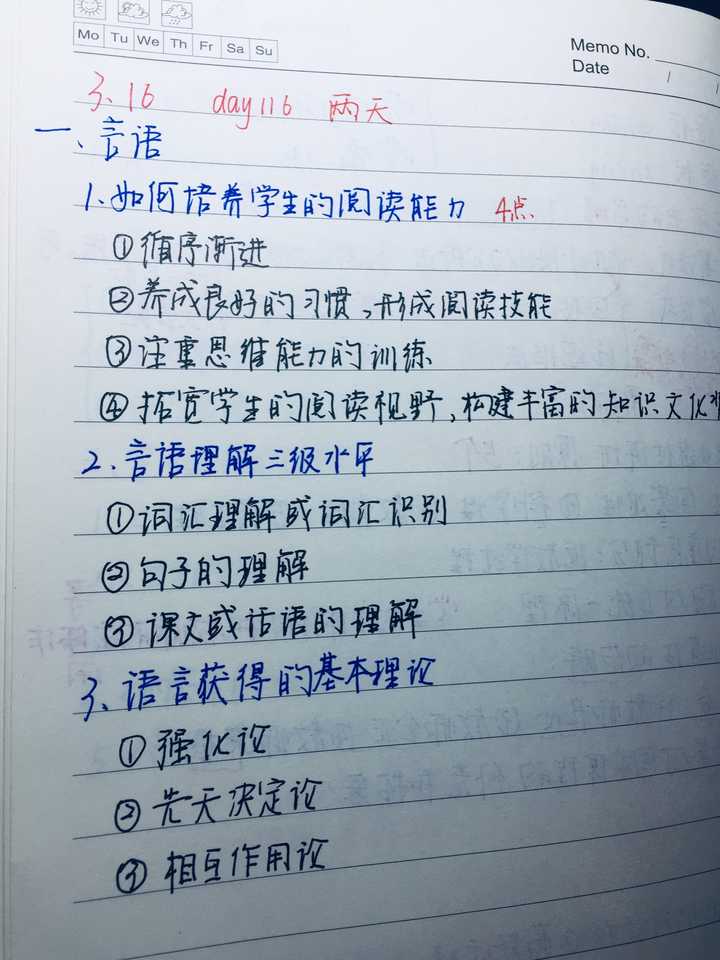 Mo Tu We Th Fr Sa Su
Memo No.
Date / /
3.16 day116 两天
一、言语
1.如何培养学生的阅读能力 4点
①循序渐进
②养成良好的习惯,形成阅读技能
③注重思维能力的训练
④拓宽学生的阅读视野,构建丰富的知识文化
2.言语理解三级水平
①词汇理解或词汇识别
②句子的理解
③课文或话语的理解
3.语言获得的基本理论
①强化论
②先天决定论
③相互作用论